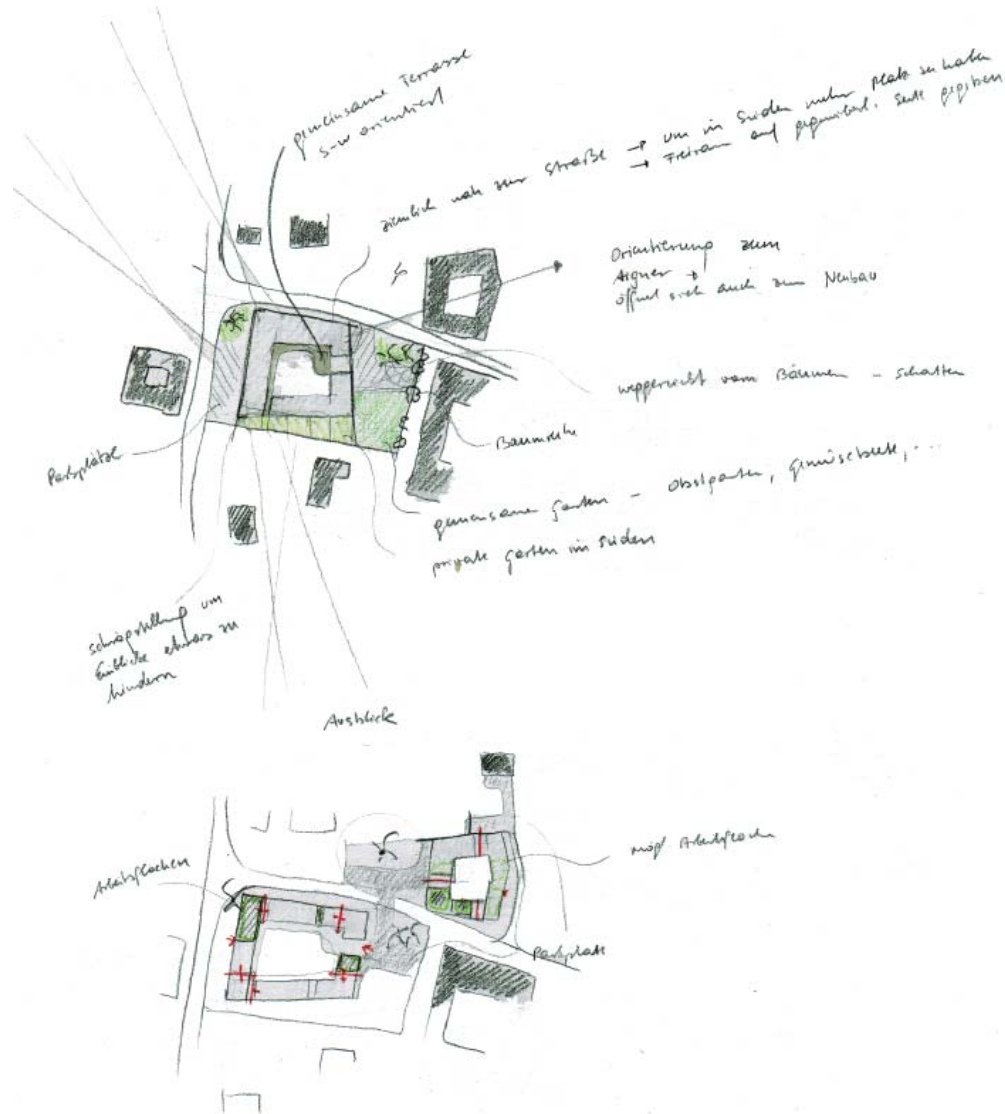 gemeinsame Terrasse
S-W orientiert
ziemlich nah zur Straße → um in Süden mehr Platz zu haben
→ Freiraum auf gegenüberl. Seite gegeben
Orientierung zum
Aigner →
öffnet sich auch zum Neubau
weggerückt vom Bäumen - Schatten
Baumreihe
Parkplätze
gemeinsame Garten - Obstgarten, Gemüsebeete, ...
private Garten im Süden
Schrägstellung um
Einblicke etwas zu
hindern
Ausblick
Arbeitsflächen
mögl. Arbeitsflächen
Parkplatz